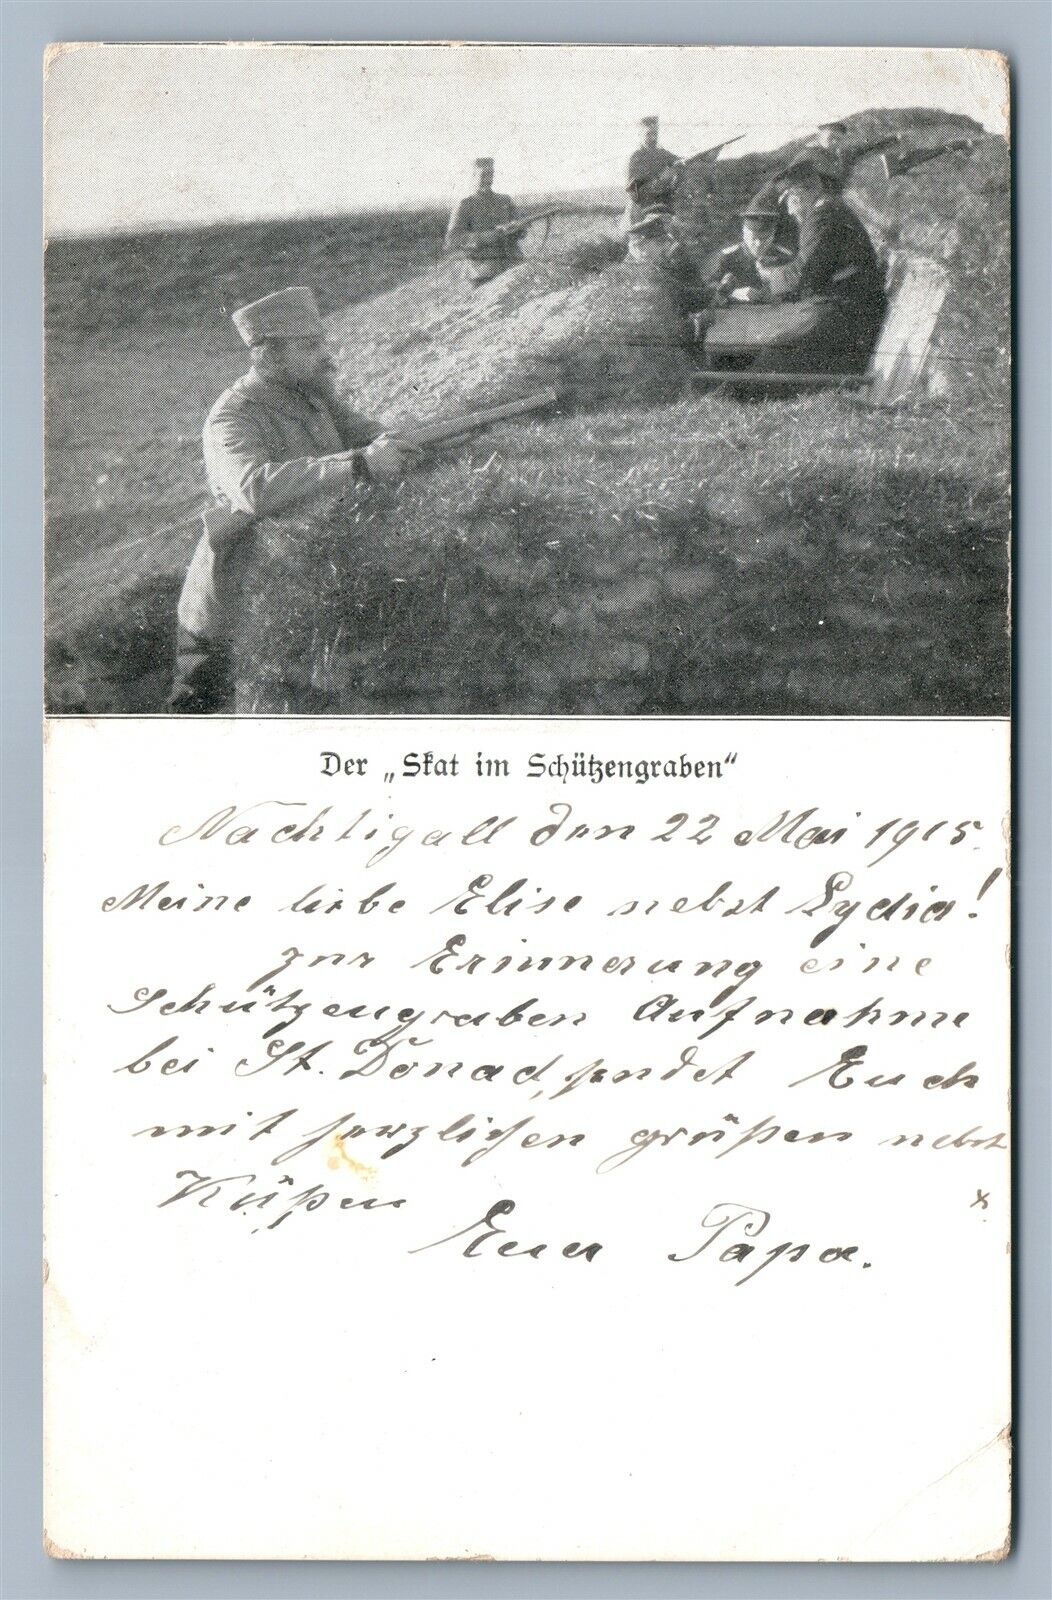 Der „Skat im Schützengraben“
Nachtigall den 22 Mai 1915.
Meine liebe Elise nebst Lydia!
zur Erinnerung eine
Schützengraben Aufnahme
bei St. Donad, sendet Euch
mit herzlichen grüßen nebst
Küßen
Euer Papa.